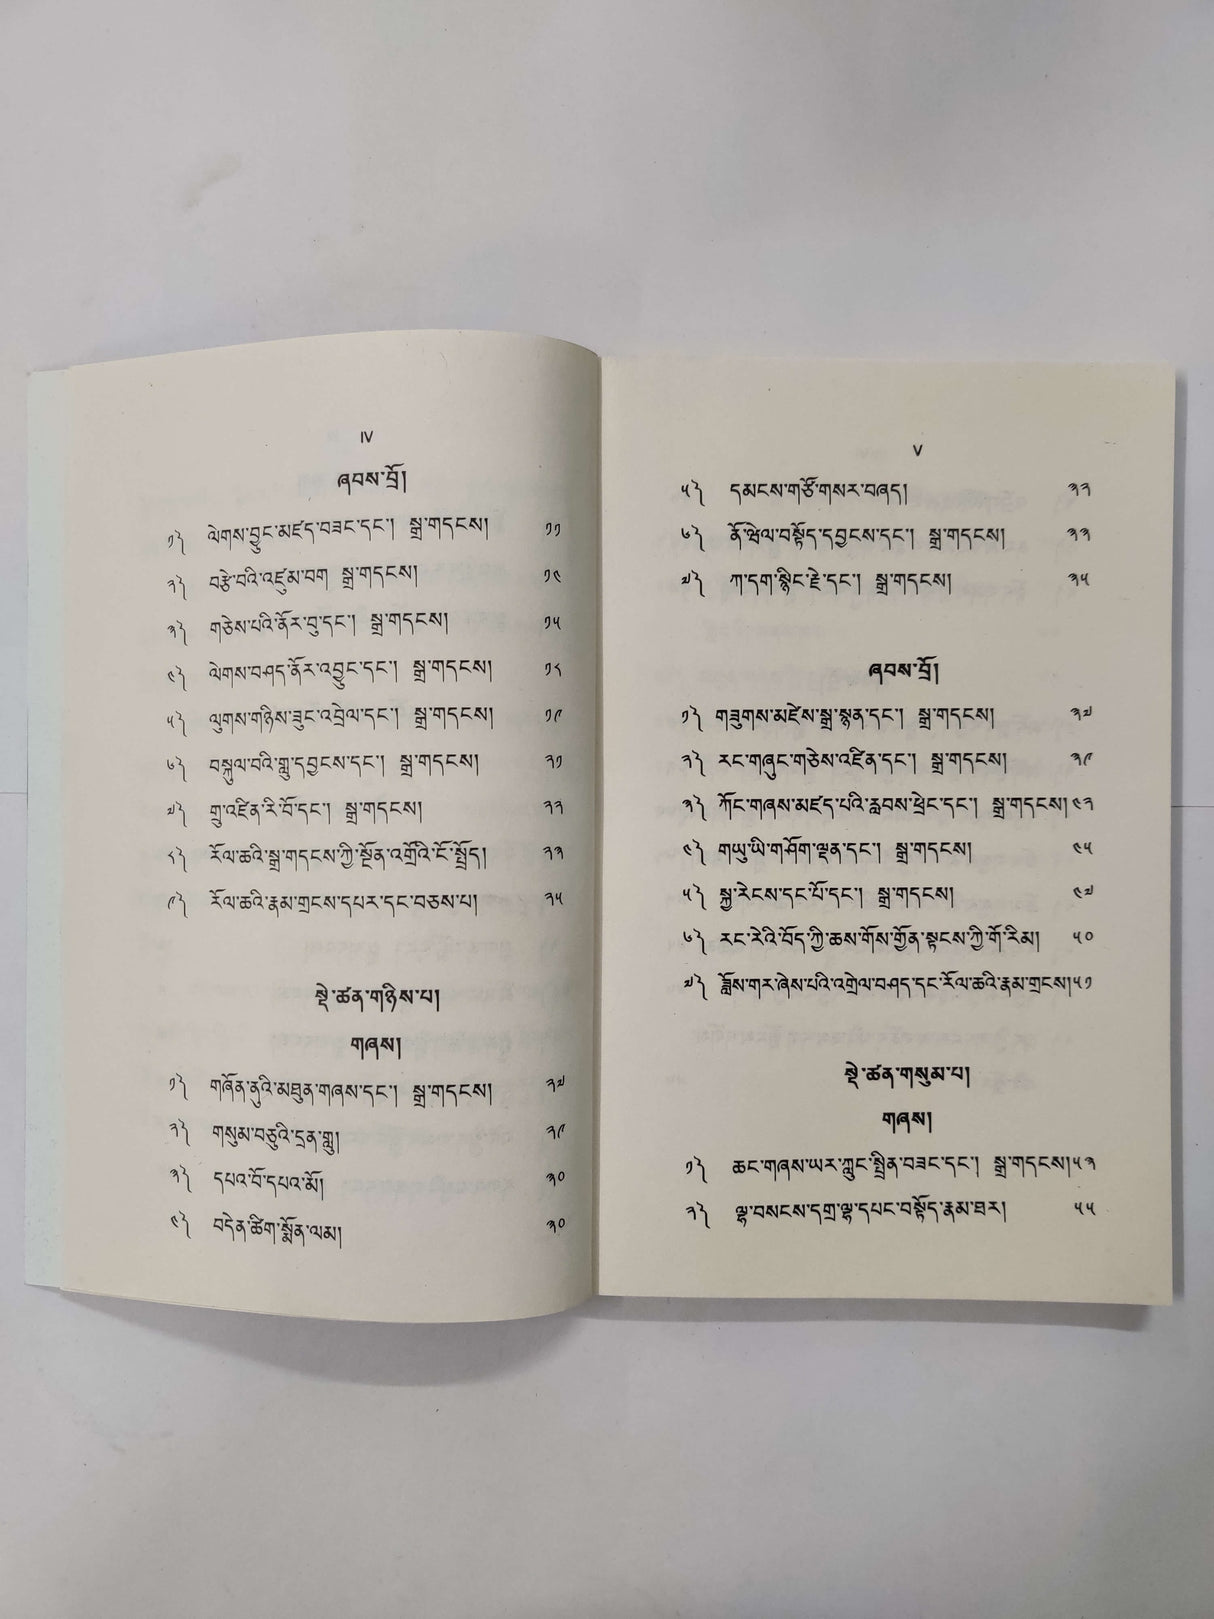 IV
ཞབས་བྲོ།
༡༽ ལེགས་བྱུང་མཛད་བཟང་དང་། སྒྲ་གདངས། ༡༡
༢༽ བརྩེ་བའི་འཛུམ་བག སྒྲ་གདངས། ༡༤
༣༽ གཅེས་པའི་ནོར་བུ་དང་། སྒྲ་གདངས། ༡༥
༤༽ ལེགས་བཤད་ནོར་འབྱུང་དང་། སྒྲ་གདངས། ༡༨
༥༽ ལུགས་གཉིས་ཟུང་འབྲེལ་དང་། སྒྲ་གདངས། ༡༩
༦༽ བསྐུལ་བའི་གླུ་དབྱངས་དང་། སྒྲ་གདངས། ༢༡
༧༽ གྲུ་འཛིན་རི་བོ་དང་། སྒྲ་གདངས། ༢༢
༨༽ རོལ་ཆའི་སྒྲ་གདངས་ཀྱི་སྔོན་འགྲོའི་ངོ་སྤྲོད། ༢༣
༩༽ རོལ་ཆའི་རྣམ་གྲངས་དཔར་དང་བཅས་པ། ༢༥
སྡེ་ཚན་གཉིས་པ།
གཞས།
༡༽ གཞོན་ནུའི་མཐུན་གཞས་དང་། སྒྲ་གདངས། ༢༧
༢༽ གསུམ་བཅུའི་དྲན་གླུ། ༢༩
༣༽ དཔའ་བོ་དཔའ་མོ། ༣༠
༤༽ བདེན་ཚིག་སྨོན་ལམ། ༣༠
V
༥༽ དམངས་གཙོ་གསར་བཞད། ༣༢
༦༽ ནོ་ཕེལ་བསྟོད་དབྱངས་དང་། སྒྲ་གདངས། ༣༣
༧༽ ཀ་དག་སྙིང་རྗེ་དང་། སྒྲ་གདངས། ༣༥
ཞབས་བྲོ།
༡༽ གཟུགས་མཛེས་སྒྲ་སྙན་དང་། སྒྲ་གདངས། ༣༧
༢༽ རང་གཞུང་གཅེས་འཛིན་དང་། སྒྲ་གདངས། ༣༩
༣༽ ཀོང་གཞས་མཛད་པའི་རླབས་ཕྲེང་དང་། སྒྲ་གདངས། ༤༢
༤༽ གཡུ་ཡི་གཤོག་ལྡན་དང་། སྒྲ་གདངས། ༤༥
༥༽ སྐྱ་རེངས་དང་པོ་དང་། སྒྲ་གདངས། ༤༧
༦༽ རང་རེའི་བོད་ཀྱི་ཆས་གོས་གྱོན་སྟངས་ཀྱི་གོ་རིམ། ༥༠
༧༽ ཟློས་གར་ཞེས་པའི་འགྲེལ་བཤད་དང་རོལ་ཆའི་རྣམ་གྲངས། ༥༡
སྡེ་ཚན་གསུམ་པ།
གཞས།
༡༽ ཆང་གཞས་ཡར་ཀླུང་སྤྲིན་བཟང་དང་། སྒྲ་གདངས། ༥༣
༢༽ ལྷ་བསངས་དགྲ་ལྷ་དཔང་བསྟོད་རྣམ་ཐར། ༥༥